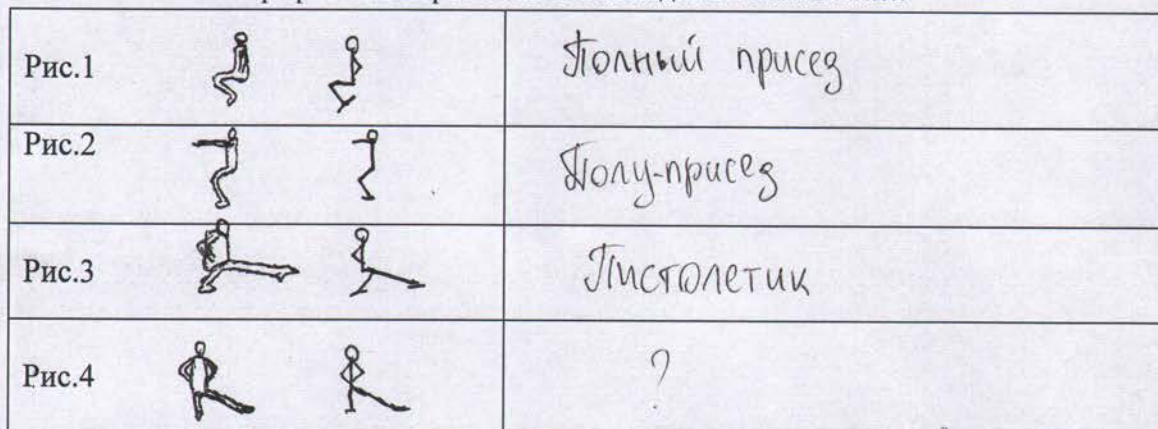 Рис.1
Полный присед
Рис.2
Полу-присед
Рис.3
Пистолетик
Рис.4
?